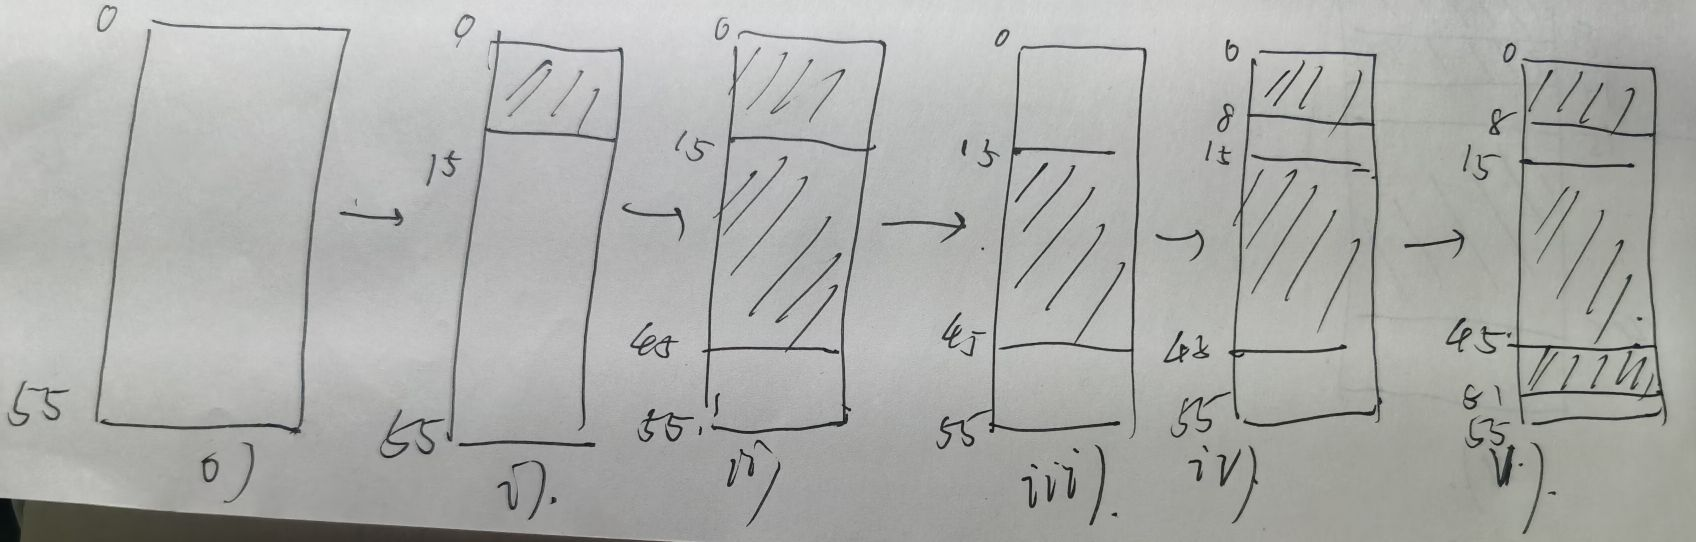 0
55
0)
0
15
55
i).
0
15
45
55.
ii)
0
15
45
55
iii).
0
8
15
45
55
iv).
0
8
15
45.
51
55
v).